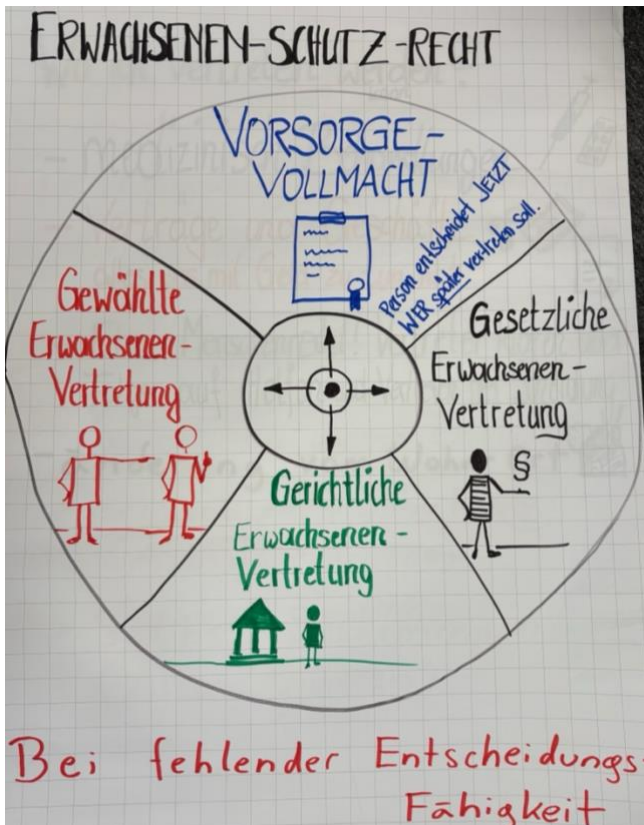 ERWACHSENEN-SCHUTZ-RECHT
VORSORGE-
VOLLMACHT
Person entscheidet JETZT
WER später vertreten soll.
Gewählte
Erwachsenen-
Vertretung
Gesetzliche
Erwachsenen-
Vertretung
§
Gerichtliche
Erwachsenen-
Vertretung
Bei fehlender Entscheidungs-
Fähigkeit